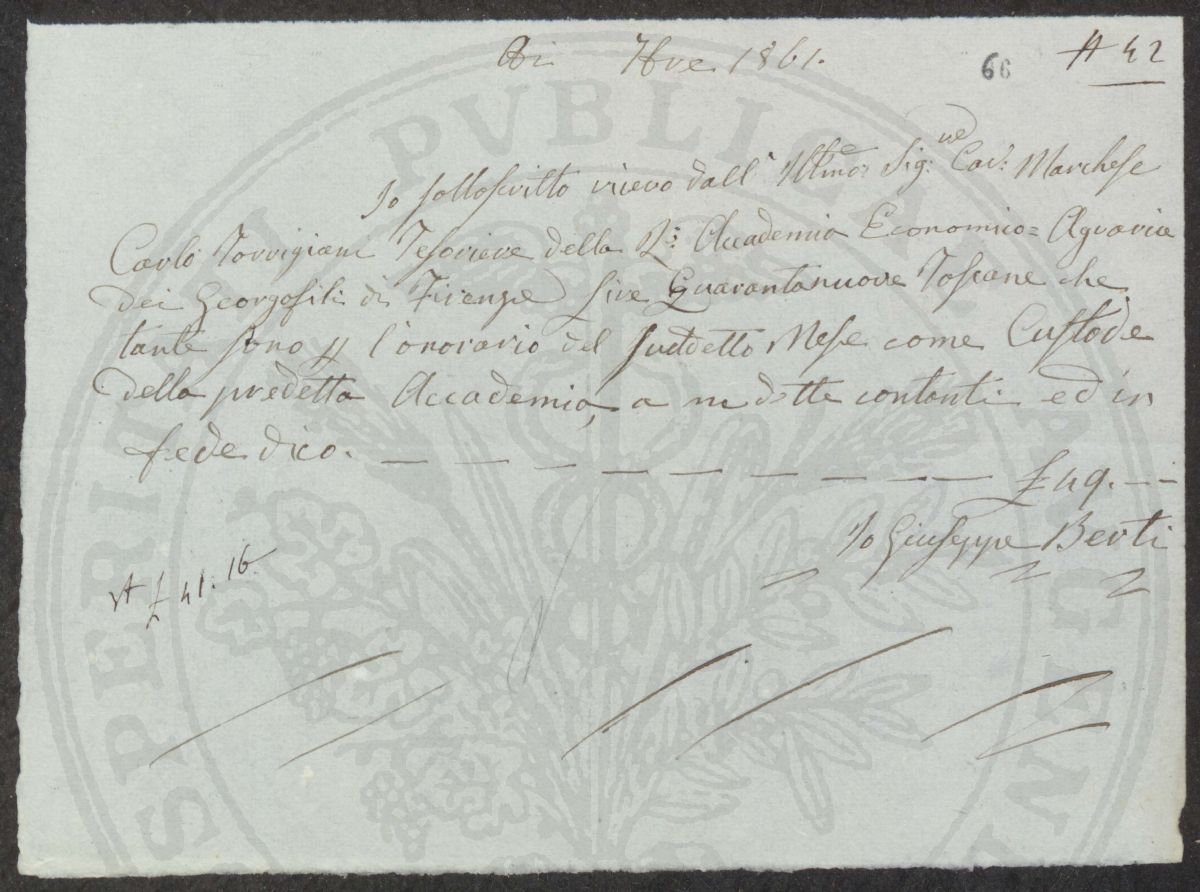 Di 7bre 1861.
66
A 42
Io sottoscritto ricevo dall' Illmo: Sig:re Cav: Marchese
Carlo Torrigiani Tesoriere della R: Accademia Economico=Agraria
dei Georgofili di Firenze Lire Quarantanuove Toscane che
tante sono p l'onorario del suddetto Mese come Custode
della predetta Accademia, a me dette contanti ed in
fede dico. — — — — — — — — — £ 49. — —
Io Giuseppe Berti
£ 41. 16
PUBLICAE
PROSPERITATI AUGENDAE